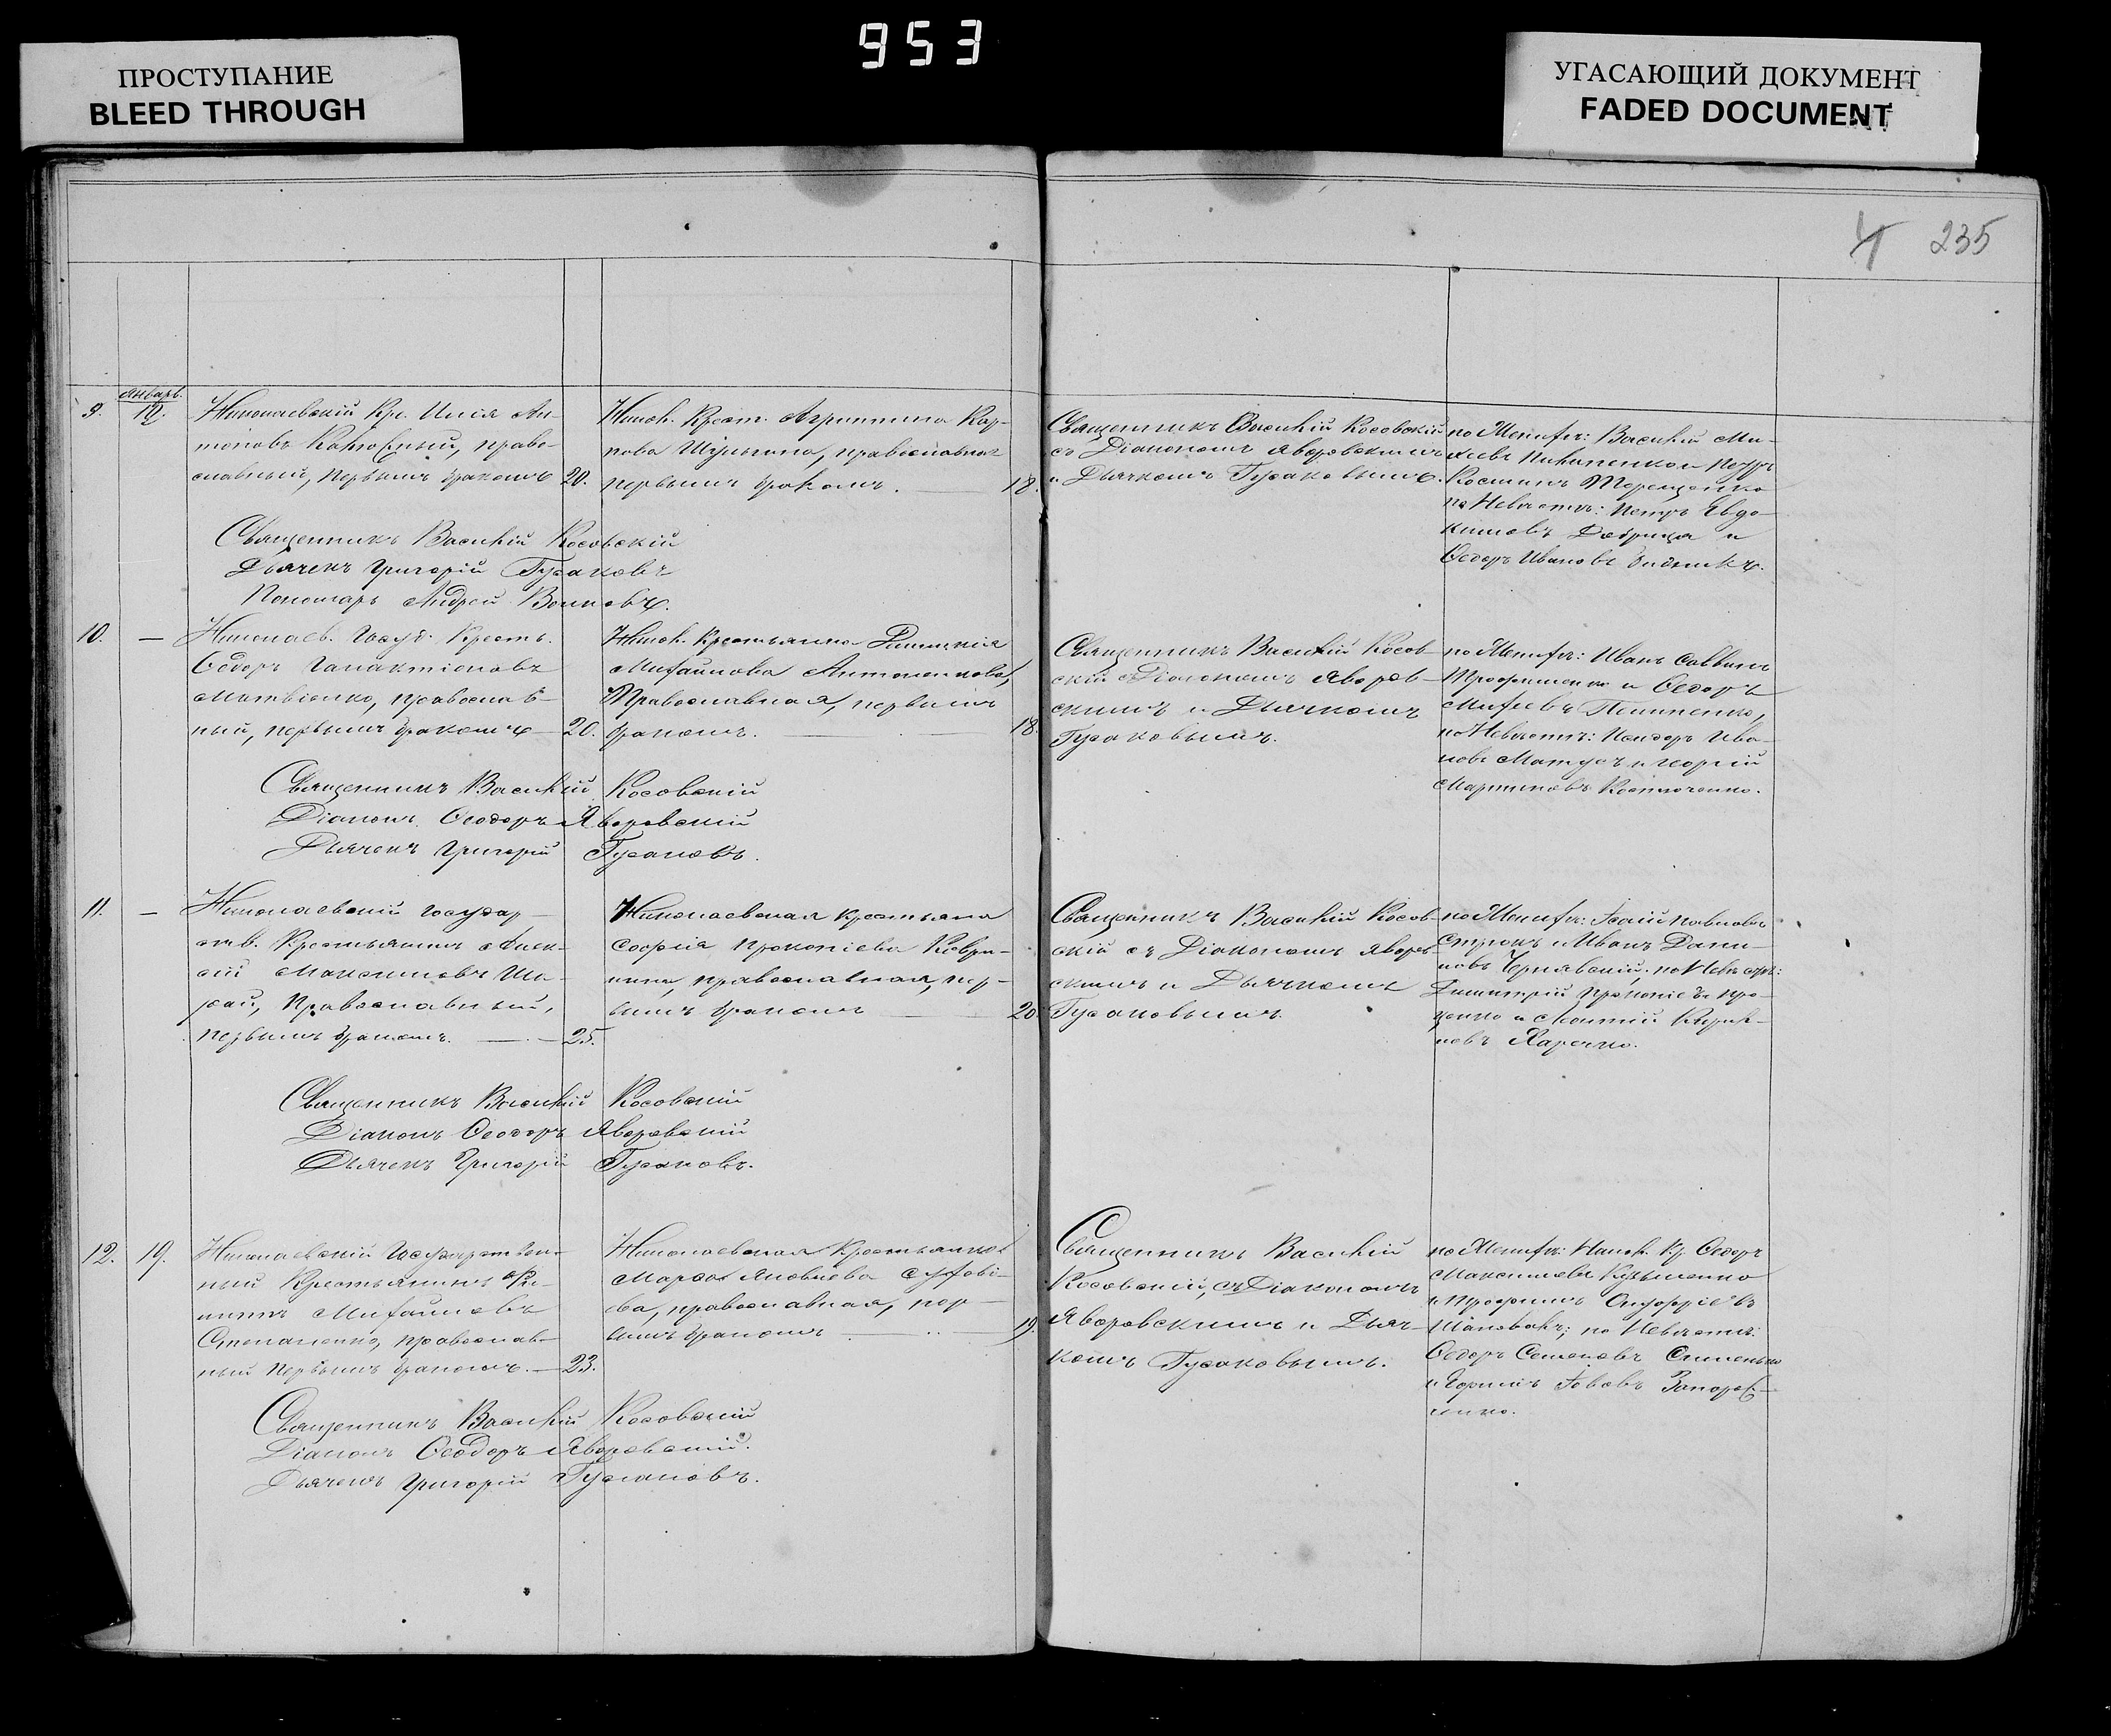 953
ПРОСТУПАНИЕ
BLEED THROUGH
УГАСАЮЩИЙ ДОКУМЕНТ
FADED DOCUMENT
235
Январь.
9. 12. Николаевскій Кр. Илія Ан-
тоновъ право-
славный, первымъ бракомъ 20.
Никол. Крест. Агриппина Кар-
пова Шульгина, православная
первымъ бракомъ. 18.
Священникъ Василій Косовскій
съ Діакономъ Яворовскимъ
и Дьячкомъ Гусаковымъ.
по Женихѣ: Василій Ми-
Петръ
Косминъ Терещенко
по Невѣстѣ: Петръ Евдо-
кимовъ и
Ѳедоръ Ивановъ
Священникъ Василій Косовскій
Дьячекъ Григорій Гусаковъ
Пономарь Андрей
10. — Николаев. Госуд. Крестьян.
Ѳедоръ Галактіоновъ
Матвіенко, православ-
ный, первымъ бракомъ 20.
Никол. Крестьянка
Михайлова Антоненкова,
Православная, первымъ
бракомъ. 18.
Священникъ Василій Косов-
скій съ Діакономъ Яворов-
скимъ и Дьячкомъ
Гусаковымъ.
по Женихѣ: Иванъ Саввинъ
Трофименко и Ѳедоръ
по Невѣстѣ: Исидоръ Ива-
новъ и Георгій
Мартиновъ
Священникъ Василій Косовскій
Діаконъ Ѳеодоръ Яворовскій
Дьячекъ Григорій Гусаковъ.
11. — Николаевскій государ-
ств. Крестьянинъ Алек-
сій Максимовъ
Православный,
первымъ бракомъ. 25.
Николаевская крестьянка
Софія Прокопіева
православная, пер-
вымъ бракомъ 20.
Священникъ Василій Косов-
скій съ Діакономъ Яворов-
скимъ и Дьячкомъ
Гусаковымъ.
по Женихѣ: Павловъ
и Иванъ Дани-
ловъ Чернявскій; по Невѣстѣ:
Димитрій Прокопіевъ Про-
ценко и
Харченко.
Священникъ Василій Косовскій
Діаконъ Ѳеодоръ Яворовскій
Дьячекъ Григорій Гусаковъ.
12. 19. Николаевскій Государствен-
ный Крестьянинъ Фи-
липпъ Михайловъ
Степаненко, православ-
ный первымъ бракомъ. 23.
Николаевская Крестьянка
Марѳа Яковлева
православная, пер-
вымъ бракомъ 19.
Священникъ Василій
Косовскій, съ Діакономъ
Яворовскимъ и Дьяч-
комъ Гусаковымъ.
по Женихѣ: Никол. Кр. Ѳедоръ
Максимовъ Кузьменко
и Трофимъ Онуфріевъ
Шаповалъ; по Невѣстѣ:
Ѳедоръ Семеновъ
Священникъ Василій Косовскій
Діаконъ Ѳеодоръ Яворовскій.
Дьячекъ Григорій Гусаковъ.